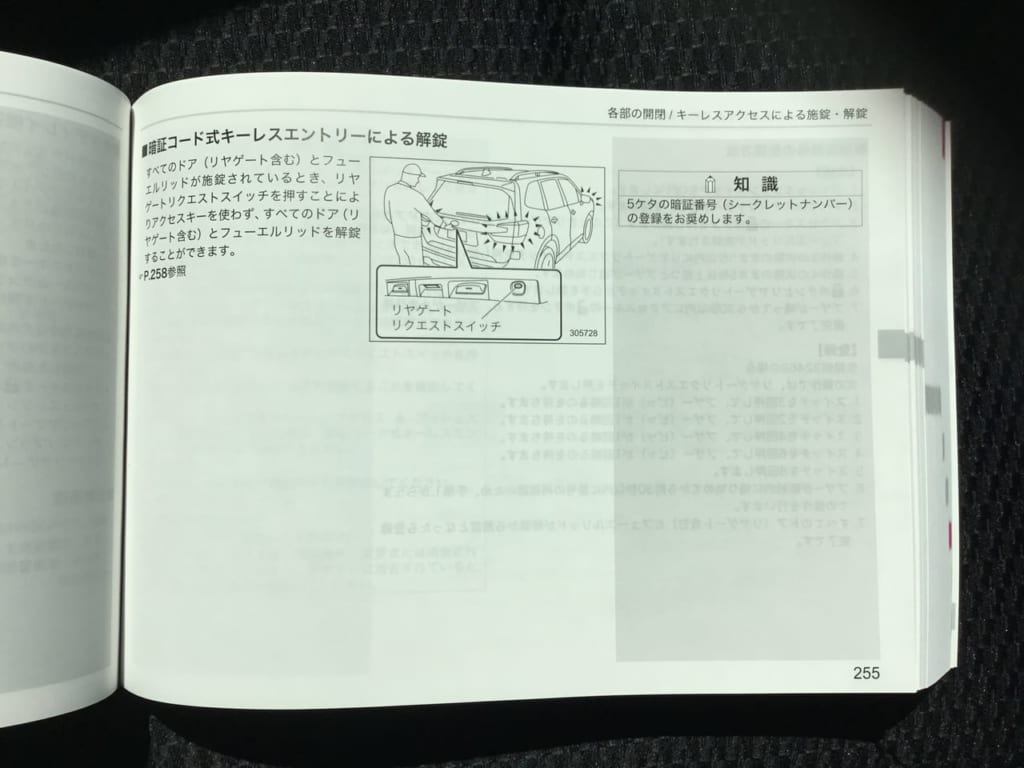 各部の開閉 / キーレスアクセスによる施錠・解錠
■暗証コード式キーレスエントリーによる解錠
すべてのドア（リヤゲート含む）とフュー
エルリッドが施錠されているとき、リヤ
ゲートリクエストスイッチを押すことによ
りアクセスキーを使わず、すべてのドア（リ
ヤゲート含む）とフューエルリッドを解錠
することができます。
☞P.258参照
リヤゲート
リクエストスイッチ
305728
知 識
5ケタの暗証番号（シークレットナンバー）
の登録をお奨めします。
255